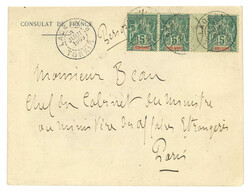 CONSULAT DE FRANCE
5 5 5
Monsieur Beau
Chef du Cabinet du Ministre
au ministère des affaires Etrangères
Paris